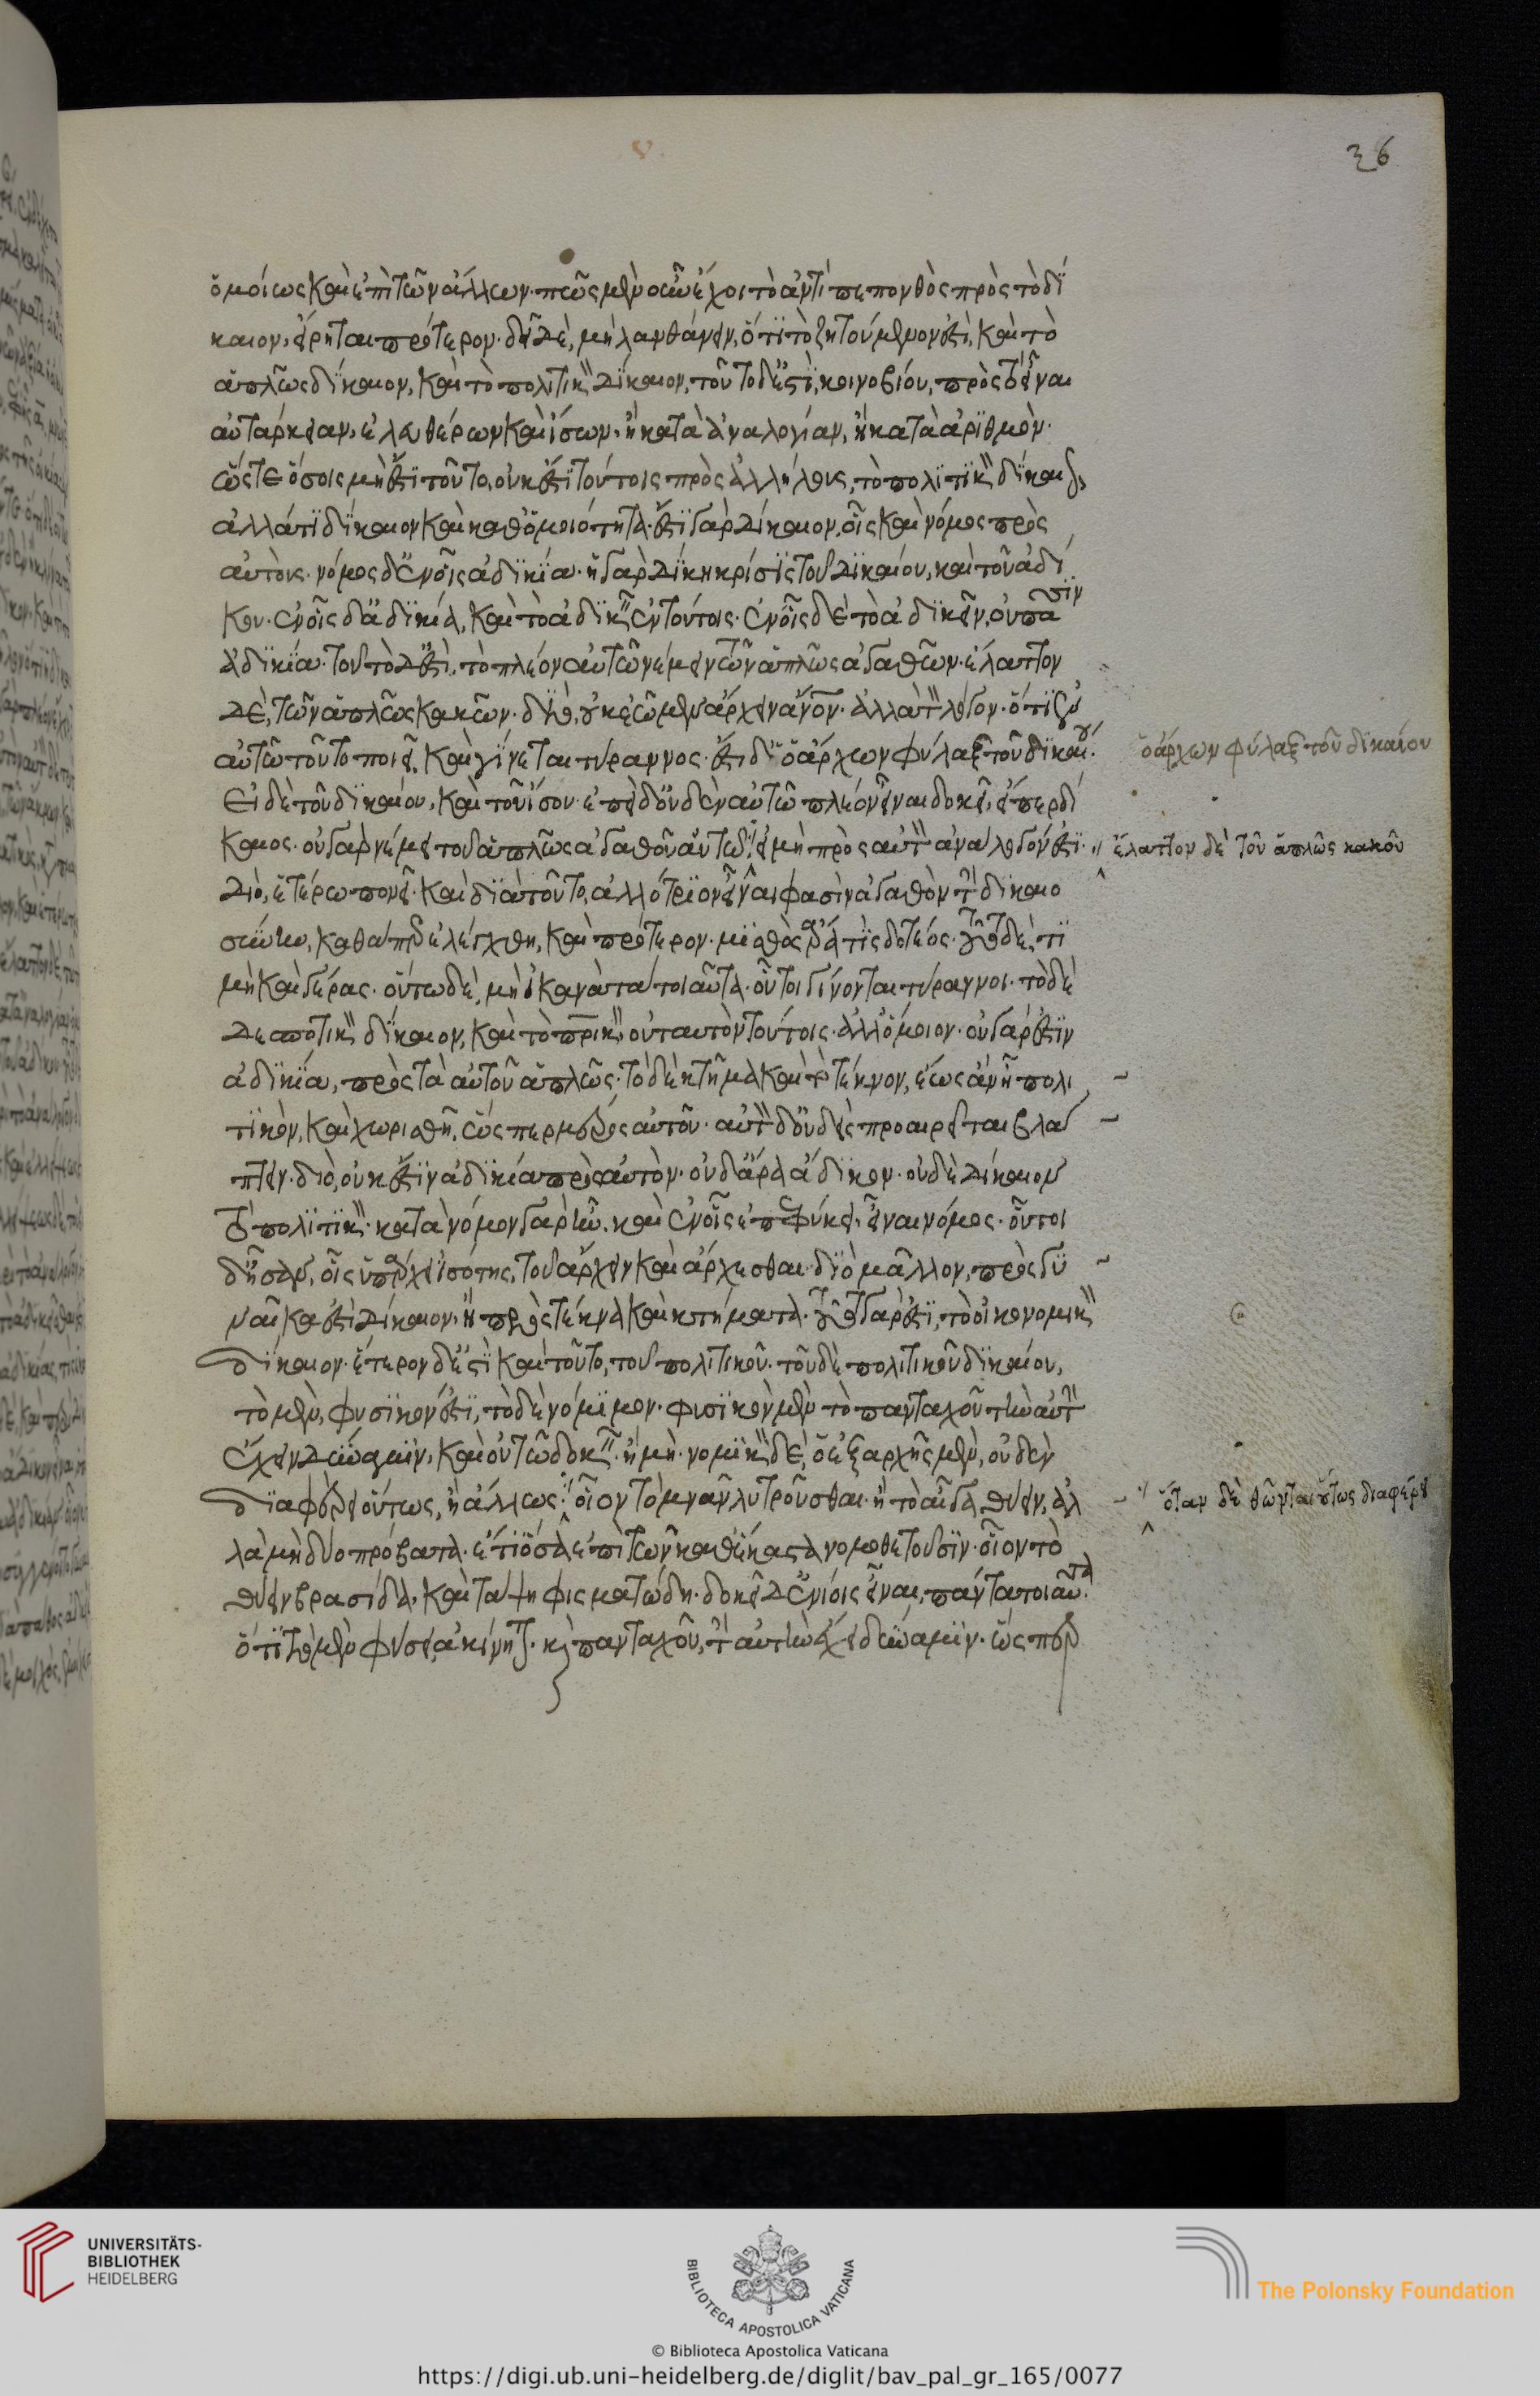 36
ὁμοίως καὶ ἐπὶ τῶν ἄλλων. πῶς μὲν οὖν ἔχοι τὸ ἀντιπεπονθὸς πρὸς τὸ δί
καιον, εἴρηται πρότερον. δεῖ δὲ, μὴ λανθάνειν, ὅτι τὸ ζητούμενον ἐστὶ, καὶ τὸ
ἁπλῶς δίκαιον, καὶ τὸ πολιτικὸν δίκαιον, τοῦτο δ' ἐστὶ, κοινοῦ βίου, πρὸς τὸ εἶναι
αὐτάρκειαν, ἐλευθέρων καὶ ἴσων, ἢ κατὰ ἀναλογίαν, ἢ κατὰ ἀριθμὸν.
ὥστε ὅσοις μή ἐστι τοῦτο, οὐκ ἔστι τούτοις πρὸς ἀλλήλους, τὸ πολιτικὸν δίκαιον,
ἀλλά τι δίκαιον καὶ καθ' ὁμοιότητα. ἔστι γὰρ δίκαιον, οἷς καὶ νόμος πρὸς
αὐτοὺς. νόμος δ' ἐν οἷς ἀδικία. ἡ γὰρ δίκη κρίσις τοῦ δικαίου, καὶ τοῦ ἀδί
κου. ἐν οἷς δ' ἀδικία, καὶ τὸ ἀδικεῖν ἐν τούτοις. ἐν οἷς δὲ τὸ ἀδικεῖν, οὐ πᾶσιν
ἀδικία. τοῦτο δ' ἐστὶ, τὸ πλέον αὑτῷ νέμειν τῶν ἁπλῶς ἀγαθῶν. ἔλαττον
δὲ, τῶν ἁπλῶς κακῶν. διὸ, οὐκ ἐῶμεν ἄρχειν ἄνον. ἀλλὰ τὸν λόγον. ὅτι
αὑτῷ τοῦτο ποιεῖ, καὶ γίνεται τύραννος. ἔστι δ' ὁ ἄρχων φύλαξ τοῦ δικαίου.
ὁ ἄρχων φύλαξ τοῦ δικαίου
εἰ δὲ τοῦ δικαίου, καὶ τοῦ ἴσου. ἐπεὶ δ' οὐδὲν αὐτῷ πλέον εἶναι δοκεῖ, εἴπερ δί
καιος. οὐ γὰρ νέμει τοῦ ἁπλῶς ἀγαθοῦ αὑτῷ, εἰ μὴ πρὸς αὐτὸν ἀνάλογόν ἐστι.
ἔλαττον δὲ τοῦ ἁπλῶς κακοῦ
διὸ, ἑτέρῳ πονεῖ. καὶ διὰ τοῦτο, ἀλλότριον εἶναι φασὶν ἀγαθὸν τὴν δικαιο
σύνην, καθάπερ ἐλέχθη, καὶ πρότερον. μισθὸς ἄρά τις δοτέος. τοῦτο δὲ, τι
μὴ καὶ γέρας. ὅτῳ δὲ, μὴ ἱκανὰ τὰ τοιαῦτα. οὗτοι γίνονται τύραννοι. τὸ δὲ
δεσποτικὸν δίκαιον, καὶ τὸ πρικὸν, οὐ ταυτὸν τούτοις. ἀλλ' ὅμοιον. οὐ γάρ ἐστιν
ἀδικία, πρὸς τὰ αὑτοῦ ἁπλῶς. τὸ δὲ κτῆμα καὶ τὸ τέκνον, ἕως ἂν ᾖ πολι
τικὸν, καὶ χωρισθῇ, ὥσπερ μέρος αὐτοῦ. αὐτὸν δ' οὐδεὶς προαιρεῖται βλά
πτειν. διὸ, οὐκ ἔστιν ἀδικία πρὸς αὑτὸν. οὐδ' ἄρα ἄδικον. οὐδὲ δίκαιον
τὸ πολιτικὸν. κατὰ νόμον γὰρ ἦν. καὶ ἐν οἷς ἐπεφύκει, εἶναι νόμος. οὗτοι
δ' ἦσαν, οἷς ὑπάρχει ἰσότης, τοῦ ἄρχειν καὶ ἄρχεσθαι. διὸ μᾶλλον, πρὸς γυ
ναῖκα ἐστὶ δίκαιον. ἢ πρὸς τέκνα καὶ κτήματα. τοῦτο γάρ ἐστι, τὸ οἰκονομικὸν
δίκαιον. ἕτερον δέ ἐστι καὶ τοῦτο, τοῦ πολιτικοῦ. τοῦ δὲ πολιτικοῦ δικαίου,
τὸ μὲν, φυσικόν ἐστι, τὸ δὲ νόμιμον. φυσικὸν μὲν τὸ πανταχοῦ τὴν αὐτὴν
ἔχειν δύναμιν, καὶ οὐ τῷ δοκεῖν. ἢ μὴ. νομικὸν δὲ, ὃ ἐξ ἀρχῆς μὲν, οὐδὲν
διαφέρει οὕτως, ἢ ἄλλως. οἷον τὸ μνᾶν λυτροῦσθαι. ἢ τὸ αἶγα θύειν, ἀλ
ὅταν δὲ θῶνται οὕτως διαφέρει
λὰ μὴ δύο πρόβατα. ἔτι ὅσα ἐπὶ τῶν καθέκαστα νομοθετοῦσιν. οἷον τὸ
θύειν βρασίδα, καὶ τὰ ψηφισματώδη. δοκεῖ δ' ἐνίοις εἶναι, πάντα τοιαῦτα.
ὅτι τὸ μὲν φύσει, ἀκίνητον. καὶ πανταχοῦ, τὴν αὐτὴν ἔχει δύναμιν. ὥσπερ
UNIVERSITÄTS-
BIBLIOTHEK
HEIDELBERG
BIBLIOTECA APOSTOLICA VATICANA
The Polonsky Foundation
© Biblioteca Apostolica Vaticana
https://digi.ub.uni-heidelberg.de/diglit/bav_pal_gr_165/0077